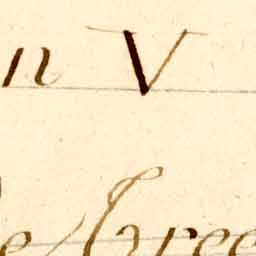 n V
e Gree